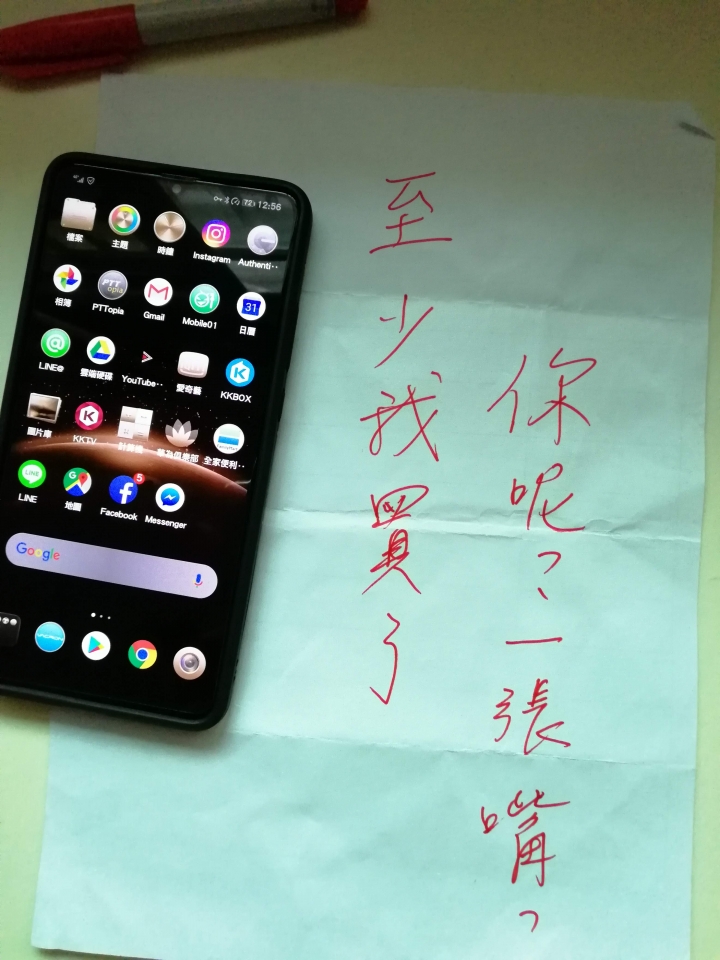 12:56
72
檔案
主題
時鐘
Instagram
Authenti··
相簿
PTTopia
Gmail
Mobile01
日曆
LINE@
雲端硬碟
YouTube··
愛奇藝
KKBOX
圖片庫
KKTV
計算機
華為俱樂部
全家便利··
LINE
地圖
Facebook
Messenger
Google
至少我買了
你呢？一張嘴？